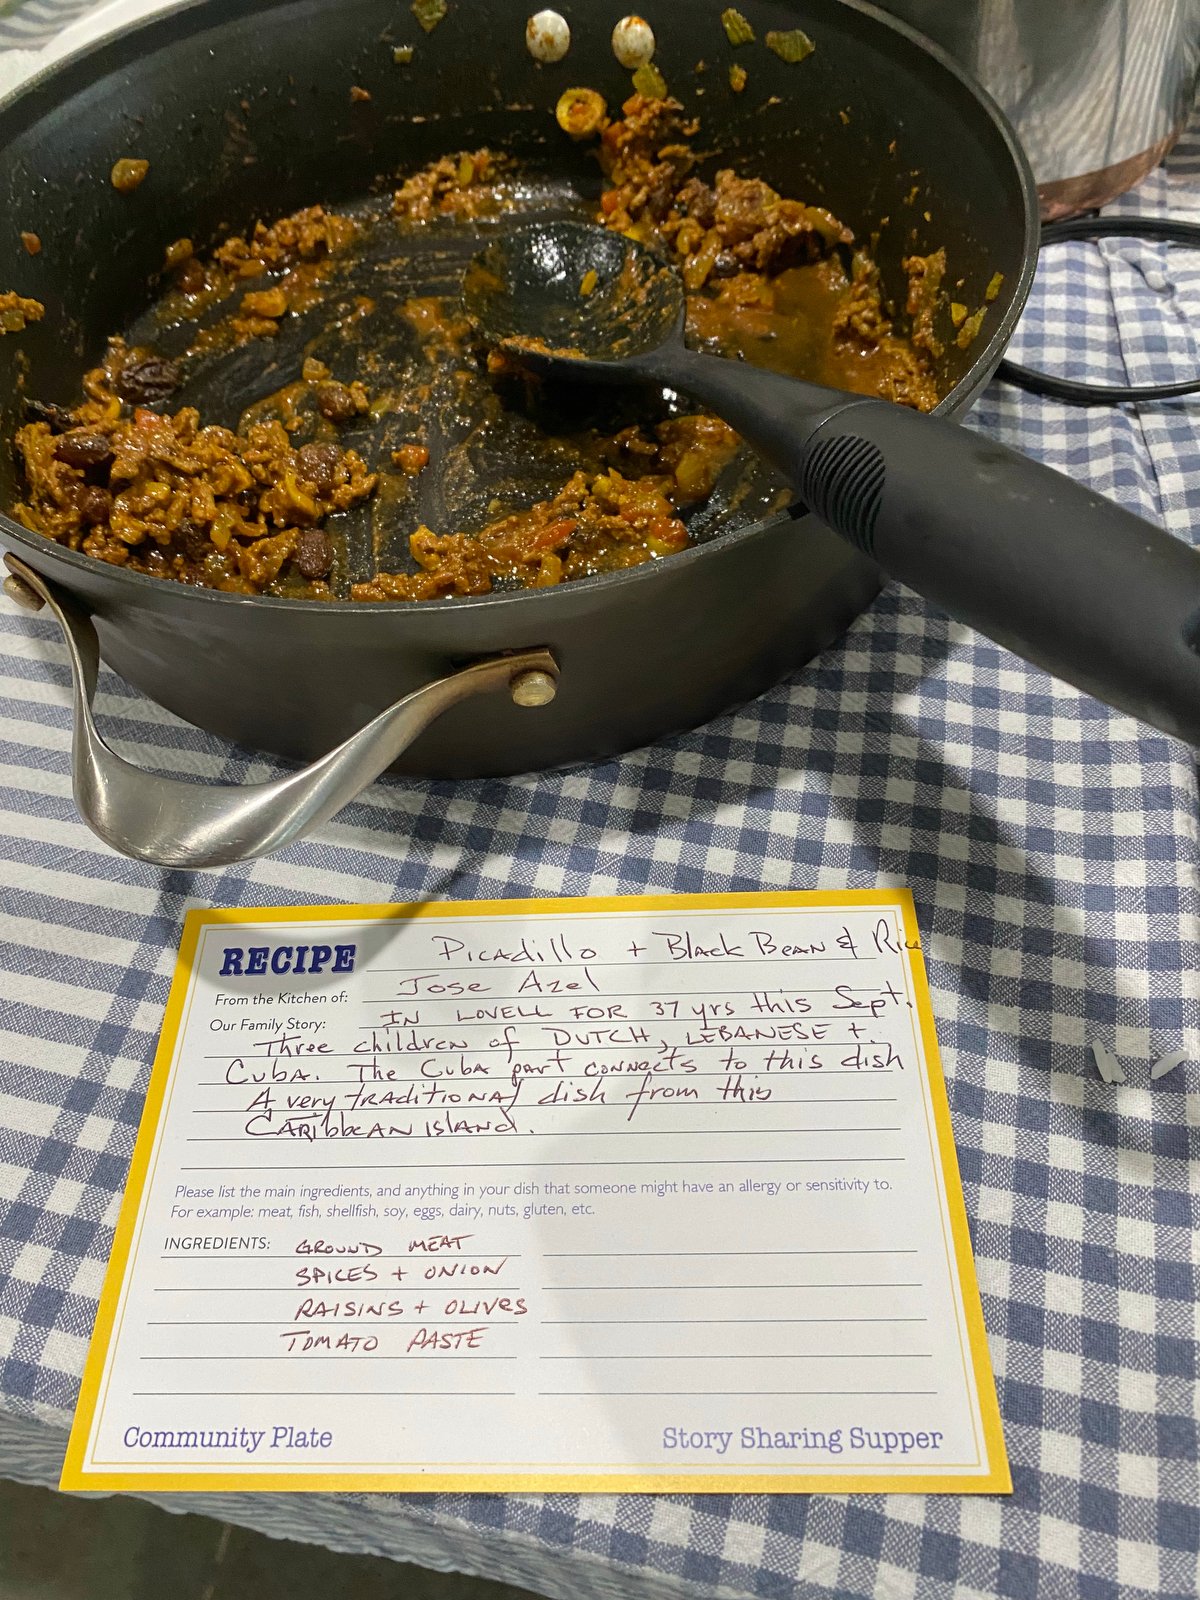 RECIPE Picadillo + Black Bean & Rice
From the Kitchen of: Jose Azel
Our Family Story: IN LOVELL FOR 37 yrs this Sept.
Three children of DUTCH, LEBANESE +
Cuba. The Cuba part connects to this dish
A very traditional dish from this
Caribbean island.
Please list the main ingredients, and anything in your dish that someone might have an allergy or sensitivity to.
For example: meat, fish, shellfish, soy, eggs, dairy, nuts, gluten, etc.
INGREDIENTS: GROUND MEAT
SPICES + ONION
RAISINS + OLIVES
TOMATO PASTE
Community Plate Story Sharing Supper